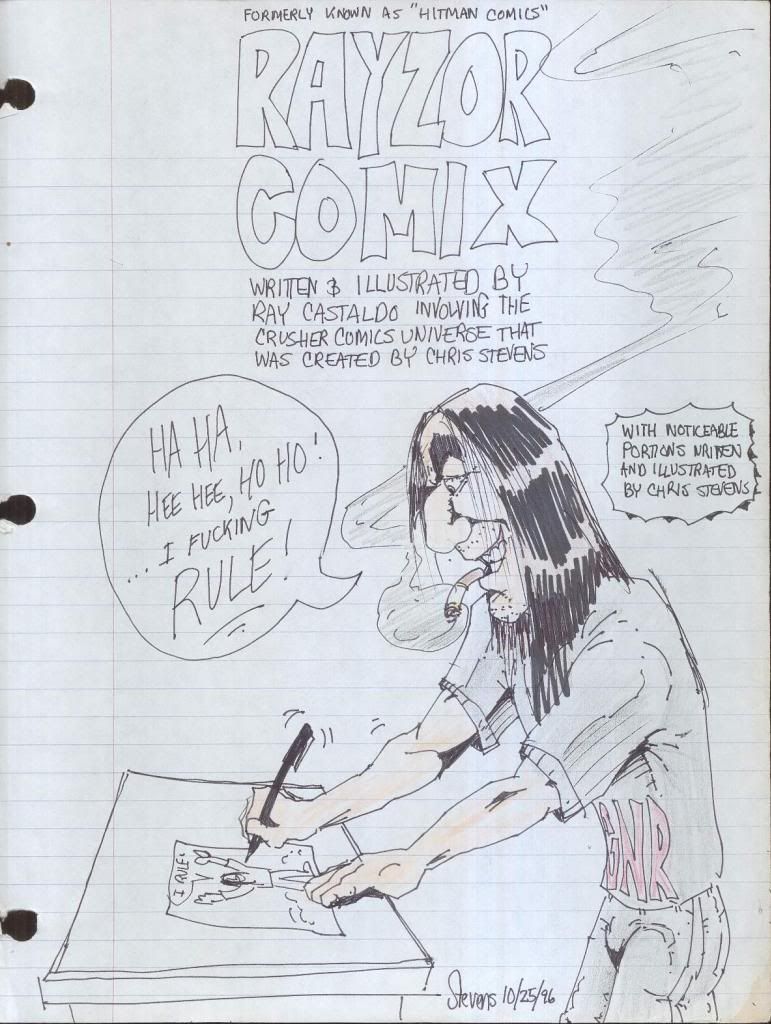 FORMERLY KNOWN AS "HITMAN COMICS"
RAYZOR
COMIX
WRITTEN & ILLUSTRATED BY
RAY CASTALDO INVOLVING THE
CRUSHER COMICS UNIVERSE THAT
WAS CREATED BY CHRIS STEVENS
HA HA,
HEE HEE, HO HO!
... I FUCKING
RULE!
WITH NOTICEABLE
PORTIONS WRITEN
AND ILLUSTRATED
BY CHRIS STEVENS
GNR
I RULE!
Stevens 10/25/96